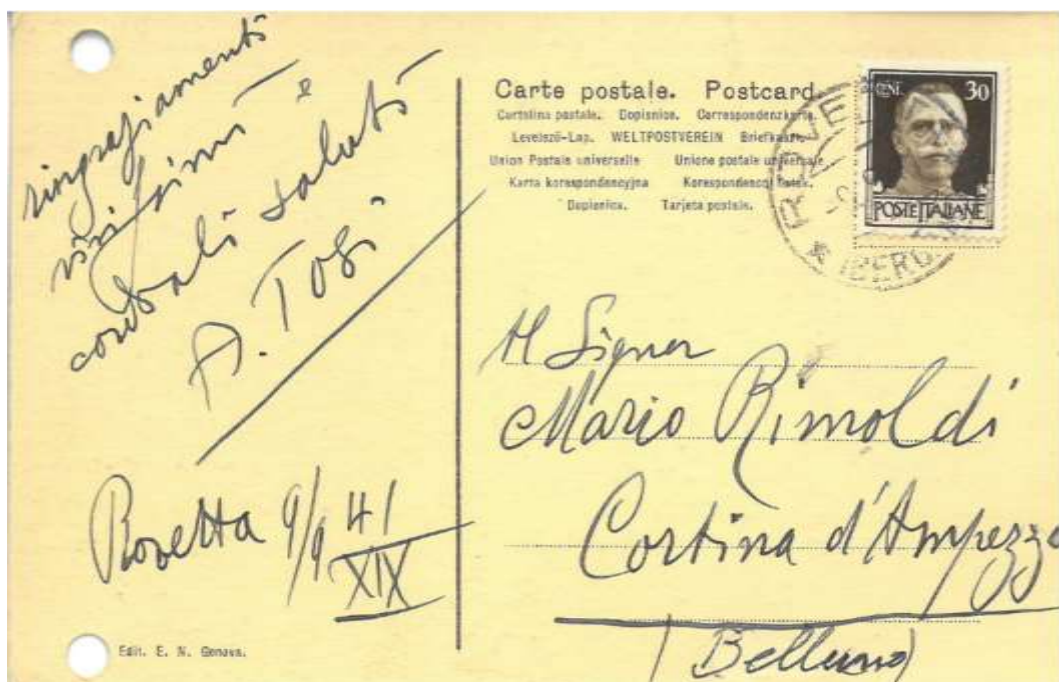 ringraziamenti
vivissimi e
cordiali saluti
A. Tosi
Rovetta 9/9 41
XIX
Edit. E. N. Genova.
Carte postale. Postcard.
Cartolina postale. Dopisnice. Correspondenzkarte.
Levelező-Lap. WELTPOSTVEREIN Briefkaart.
Union Postale universelle Unione postale universale
Karta korespondencyjna Korespondenčni listek.
Dopisnica. Tarjeta postale.
CENT. 30
POSTE ITALIANE
Al Signor
Mario Rimoldi
Cortina d'Ampezzo
(Belluno)